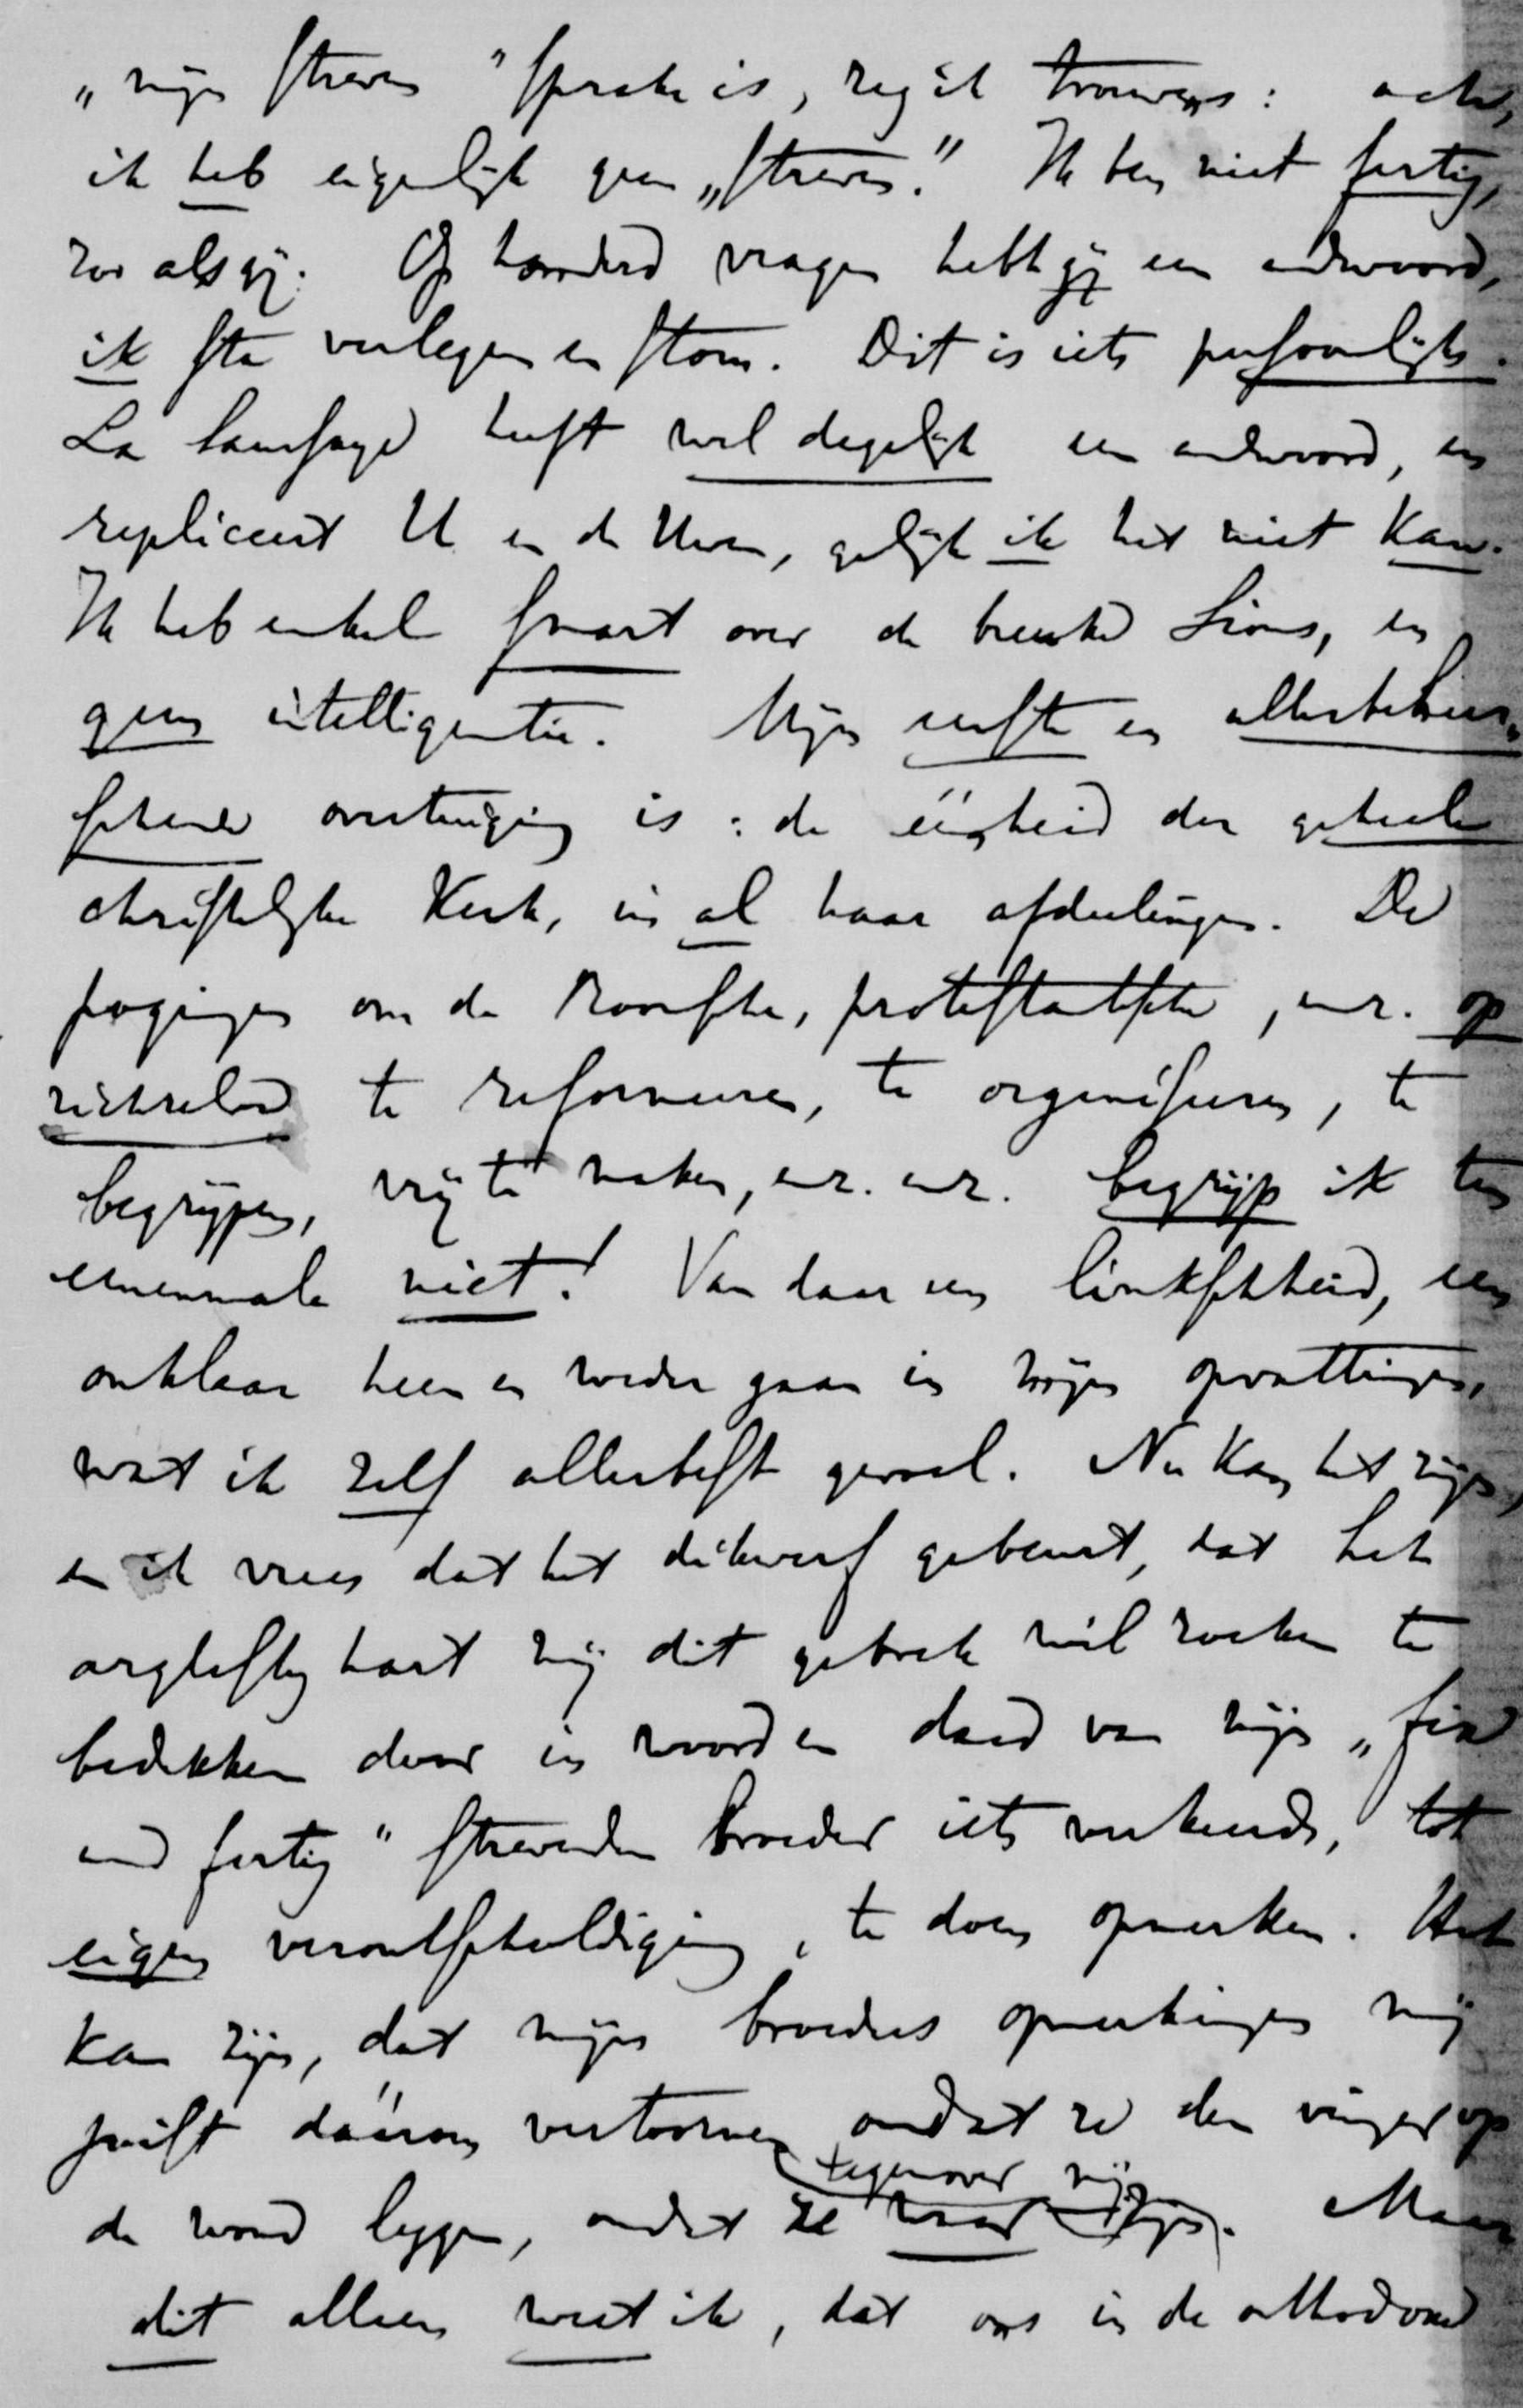 „mijn streven" sprake is, zeg ik trouwens: ach,
ik heb eigenlijk geen „streven." Ik ben niet fertig,
zoo als gij. Op honderd vragen hebt gij een andwoord,
ik sta verlegen en stom. Dit is iets persoonlijks.
La Saussaye heeft wel degelijk een andwoord, en
repliceert U en de Uwen, gelijk ik het niet kan.
Ik heb enkel smart over de breuke Sions, en
geen intelligentie. Mijn eerste en allesbeheer-
schende overtuiging is: de éénheid der geheele
christelijke Kerk, in al haar afdeelingen. De
pogingen om de Roomsche, protestantsche, enz. op
zichzelve te reformeeren, te organiseeren, te
begrijpen, vrij te maken, enz. enz. begrijp ik ten
eenenmale niet! Van daar een linkschheid, een
onklaar heen en weder gaan in mijn opvattingen,
wat ik zelf allerbest gevoel. Nu kan het zijn,
en ik vrees dat het dikwerf gebeurt, dat het
arglistig hart mij dit gebrek wil zoeken te
bedekken door in woord en daad van mijn „fix
und fertig" strevenden broeder iets verkeerds, tot
eigen verontschuldiging, te doen opmerken. Het
kan zijn, dat mijns broeders opmerkingen mij
juist dáárom vertoornen omdat ze den vinger op
de wond leggen, omdat ze waar tegenover mij zijn. Maar
dit alleen weet ik, dat ons in de orthodoxe